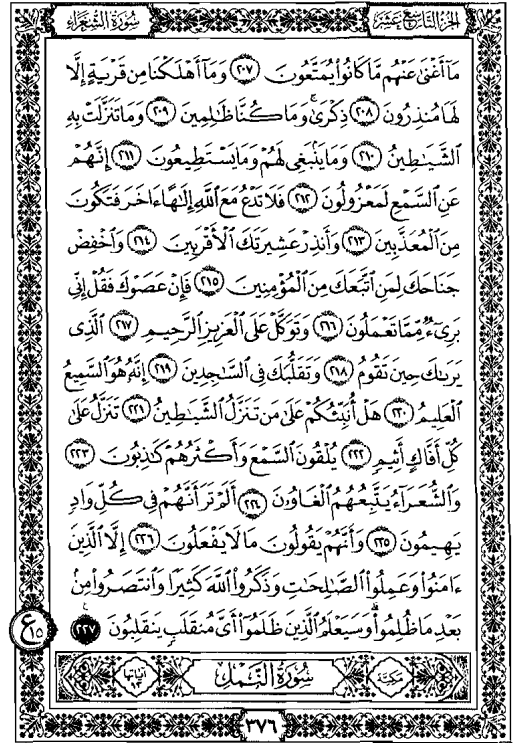 الجزء التاسع عشر سورة الشعراء
مَآ أَغْنَىٰ عَنْهُم مَّا كَانُوا۟ يُمَتَّعُونَ ٢٠٧ وَمَآ أَهْلَكْنَا مِن قَرْيَةٍ إِلَّا
لَهَا مُنذِرُونَ ٢٠٨ ذِكْرَىٰ وَمَا كُنَّا ظَـٰلِمِينَ ٢٠٩ وَمَا تَنَزَّلَتْ بِهِ
ٱلشَّيَـٰطِينُ ٢١٠ وَمَا يَنۢبَغِى لَهُمْ وَمَا يَسْتَطِيعُونَ ٢١١ إِنَّهُمْ
عَنِ ٱلسَّمْعِ لَمَعْزُولُونَ ٢١٢ فَلَا تَدْعُ مَعَ ٱللَّهِ إِلَـٰهًا ءَاخَرَ فَتَكُونَ
مِنَ ٱلْمُعَذَّبِينَ ٢١٣ وَأَنذِرْ عَشِيرَتَكَ ٱلْأَقْرَبِينَ ٢١٤ وَٱخْفِضْ
جَنَاحَكَ لِمَنِ ٱتَّبَعَكَ مِنَ ٱلْمُؤْمِنِينَ ٢١٥ فَإِنْ عَصَوْكَ فَقُلْ إِنِّى
بَرِىٓءٌ مِّمَّا تَعْمَلُونَ ٢١٦ وَتَوَكَّلْ عَلَى ٱلْعَزِيزِ ٱلرَّحِيمِ ٢١٧ ٱلَّذِى
يَرَىٰكَ حِينَ تَقُومُ ٢١٨ وَتَقَلُّبَكَ فِى ٱلسَّـٰجِدِينَ ٢١٩ إِنَّهُۥ هُوَ ٱلسَّمِيعُ
ٱلْعَلِيمُ ٢٢٠ هَلْ أُنَبِّئُكُمْ عَلَىٰ مَن تَنَزَّلُ ٱلشَّيَـٰطِينُ ٢٢١ تَنَزَّلُ عَلَىٰ
كُلِّ أَفَّاكٍ أَثِيمٍ ٢٢٢ يُلْقُونَ ٱلسَّمْعَ وَأَكْثَرُهُمْ كَـٰذِبُونَ ٢٢٣
وَٱلشُّعَرَآءُ يَتَّبِعُهُمُ ٱلْغَاوُۥنَ ٢٢٤ أَلَمْ تَرَ أَنَّهُمْ فِى كُلِّ وَادٍ
يَهِيمُونَ ٢٢٥ وَأَنَّهُمْ يَقُولُونَ مَا لَا يَفْعَلُونَ ٢٢٦ إِلَّا ٱلَّذِينَ
ءَامَنُوا۟ وَعَمِلُوا۟ ٱلصَّـٰلِحَـٰتِ وَذَكَرُوا۟ ٱللَّهَ كَثِيرًا وَٱنتَصَرُوا۟ مِنۢ
بَعْدِ مَا ظُلِمُوا۟ وَسَيَعْلَمُ ٱلَّذِينَ ظَلَمُوٓا۟ أَىَّ مُنقَلَبٍ يَنقَلِبُونَ ٢٢٧
ع ١٥
مكية سُورَةُ النَّمْلِ آياتها ٩٣
٣٧٦